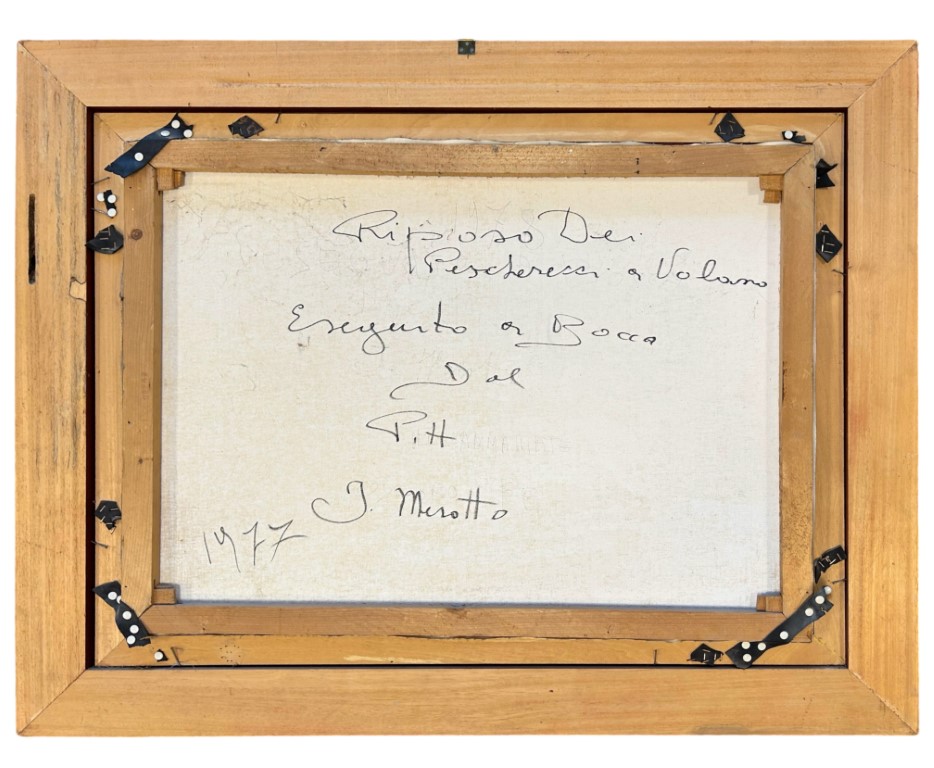 Riposo Dei
Pescherecci a Volano
Eseguito a Bocca
Dal
P.H
J. Merotto
1977